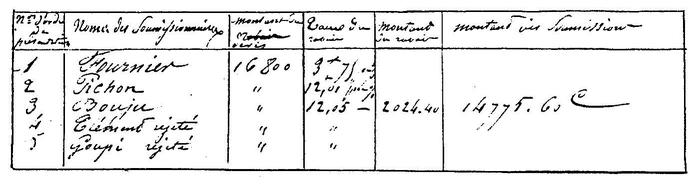 Nos d'ordre de présentation | Noms des Soumissionnaires | montant du devis | Taux du rabais | montant du rabais | montant des Soumission
1 Fournier 16800 3 75
2 Pichon " 12,01
3 Bouju " 12,05 — 2024.40 14775.60 c
4 Clément rejeté " "
5 Goupé rejeté " "